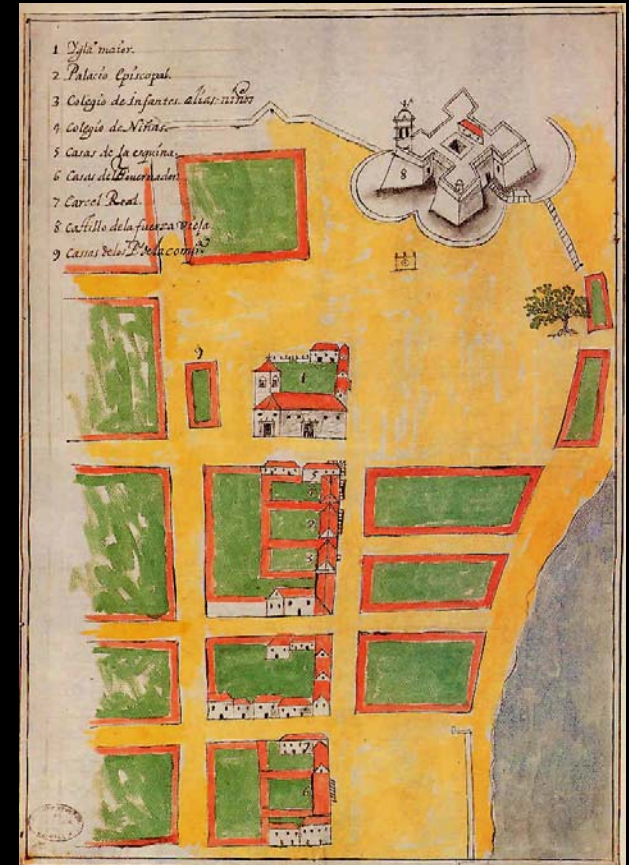 1 Yglª maior.
2 Palacio Episcopal.
3 Colegio de infantes. alias. niños
4 Colegio de Niñas.
5 Casas de la esquina.
6 Casas del Gouernador
7 Carcel Real.
8 Castillo de la fuerza vieja
9 Cassas delos Pᵉˢ de la compª
8
9
1
5
4
2
3
7
6